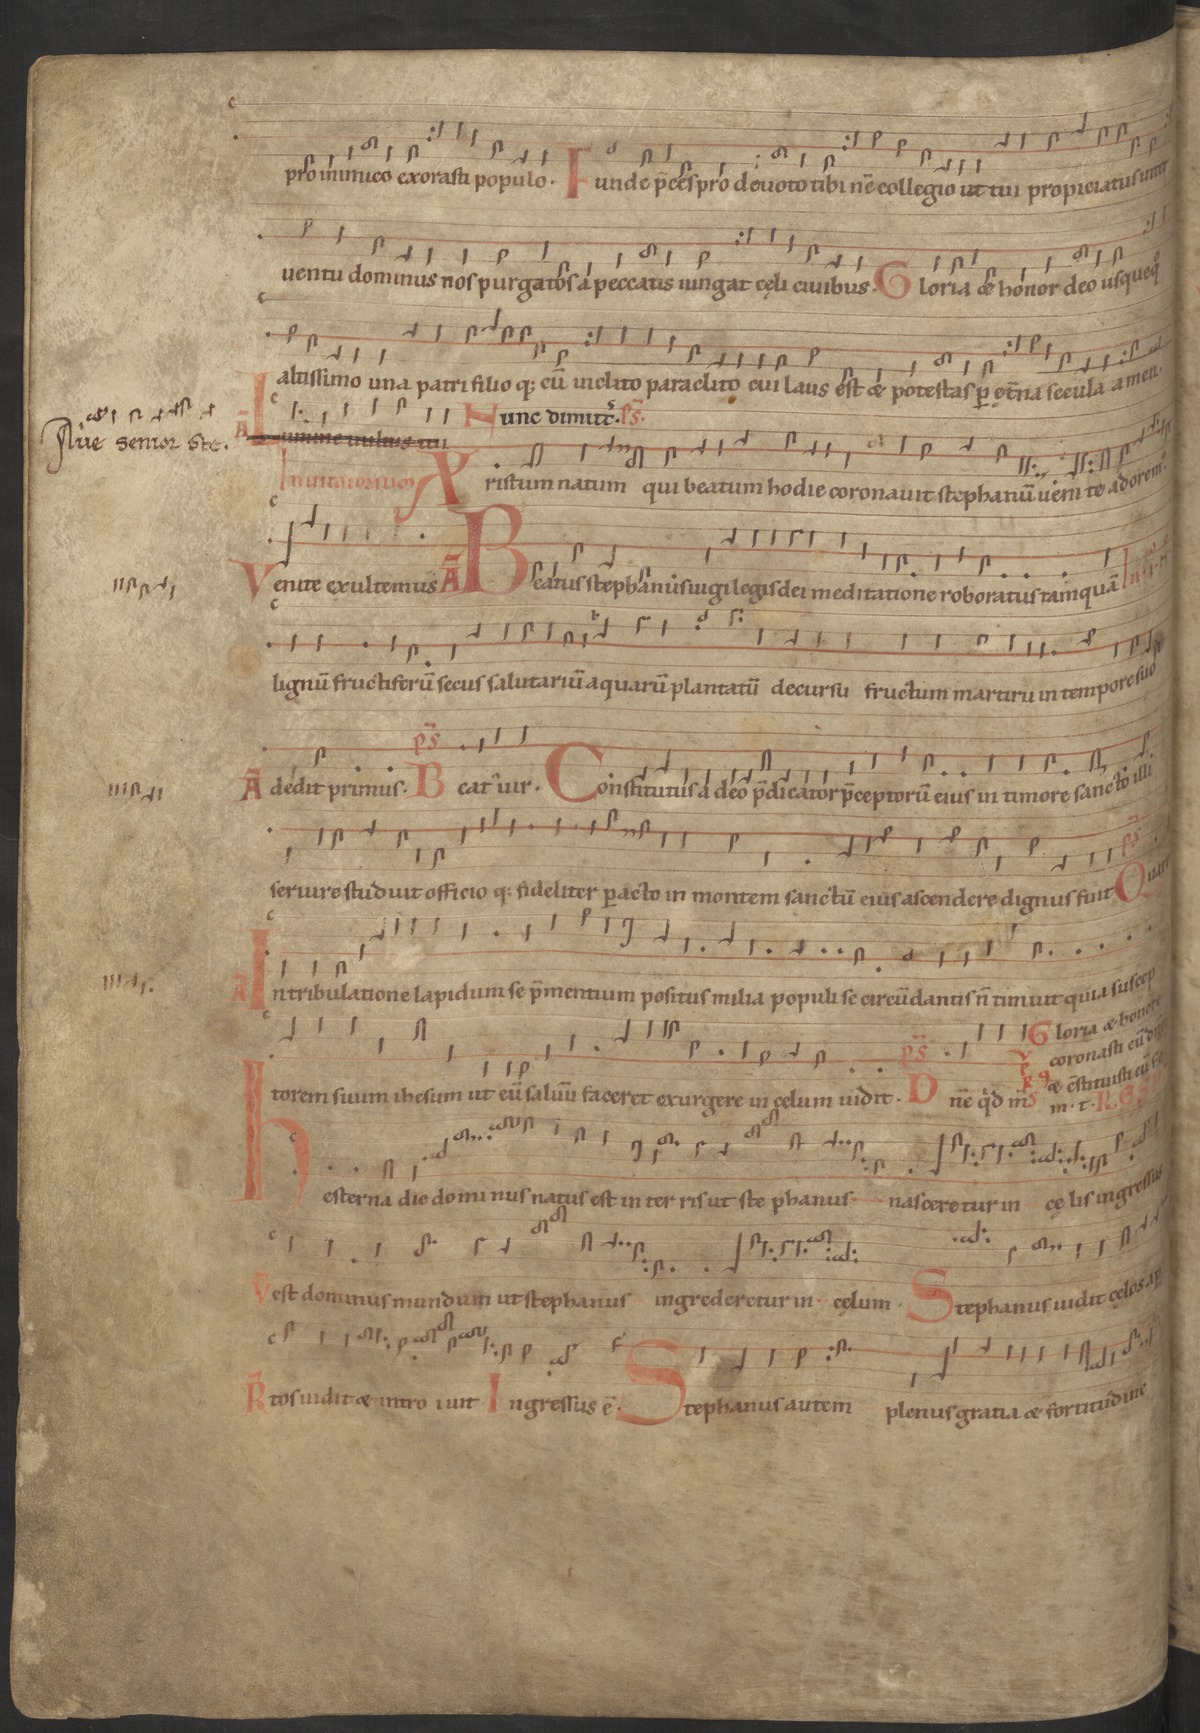 pro inimico exorasti populo. Funde p̄ces pro deuoto tibi nē collegio ut tui propiciatus inter
uentu dominus nos purgatos a peccatis iungat cęli ciuibus. Gloria & honor deo usquequo
altissimo una patri filio q; cū inclito paraclito cui laus est & potestas p̱ etn̄a secula amen.
Aue senior Ste.
Ā Lumine uultus tui Nunc dimitt̄. ps̄.
Inuitatorium Xristum natum qui beatum hodie coronauit stephanū ueni te adorem.
Venite exultemus Ā Beatus stephanus iugi legis dei meditatione roboratus tamquā In. i. N
lignū fructiferū secus salutariū aquarū plantatū decursu fructum martiru in tempore suo
Ā dedit primus. ps̄ Beat' uir. Constitutus a deo p̄dicator p̄ceptorū eius in timore sancto illi
seruire studuit officio q; fideliter p̱acto in montem sanctū eius ascendere dignus fuit ps̄ Quare
Ā In tribulatione lapidum se p̄mentium positus milia populi se circūdantis n̄ timuit quia suscep
torem suum ihesum ut eū saluū faceret exurgere in cęlum uidit. ps̄ Dn̄e qd m̄
Gloria & honore
coronasti eū dn̄e
& c̄stituisti eū
m. t. RESP
Hesterna die dominus natus est in terris ut stephanus nasceretur in cęlis ingressus
V est dominus mundum ut stephanus ingrederetur in cęlum. Stephanus uidit celos ap
R̄ tos uidit & intro iuit Ingressus ē. Stephanus autem plenus gratia & fortitudine